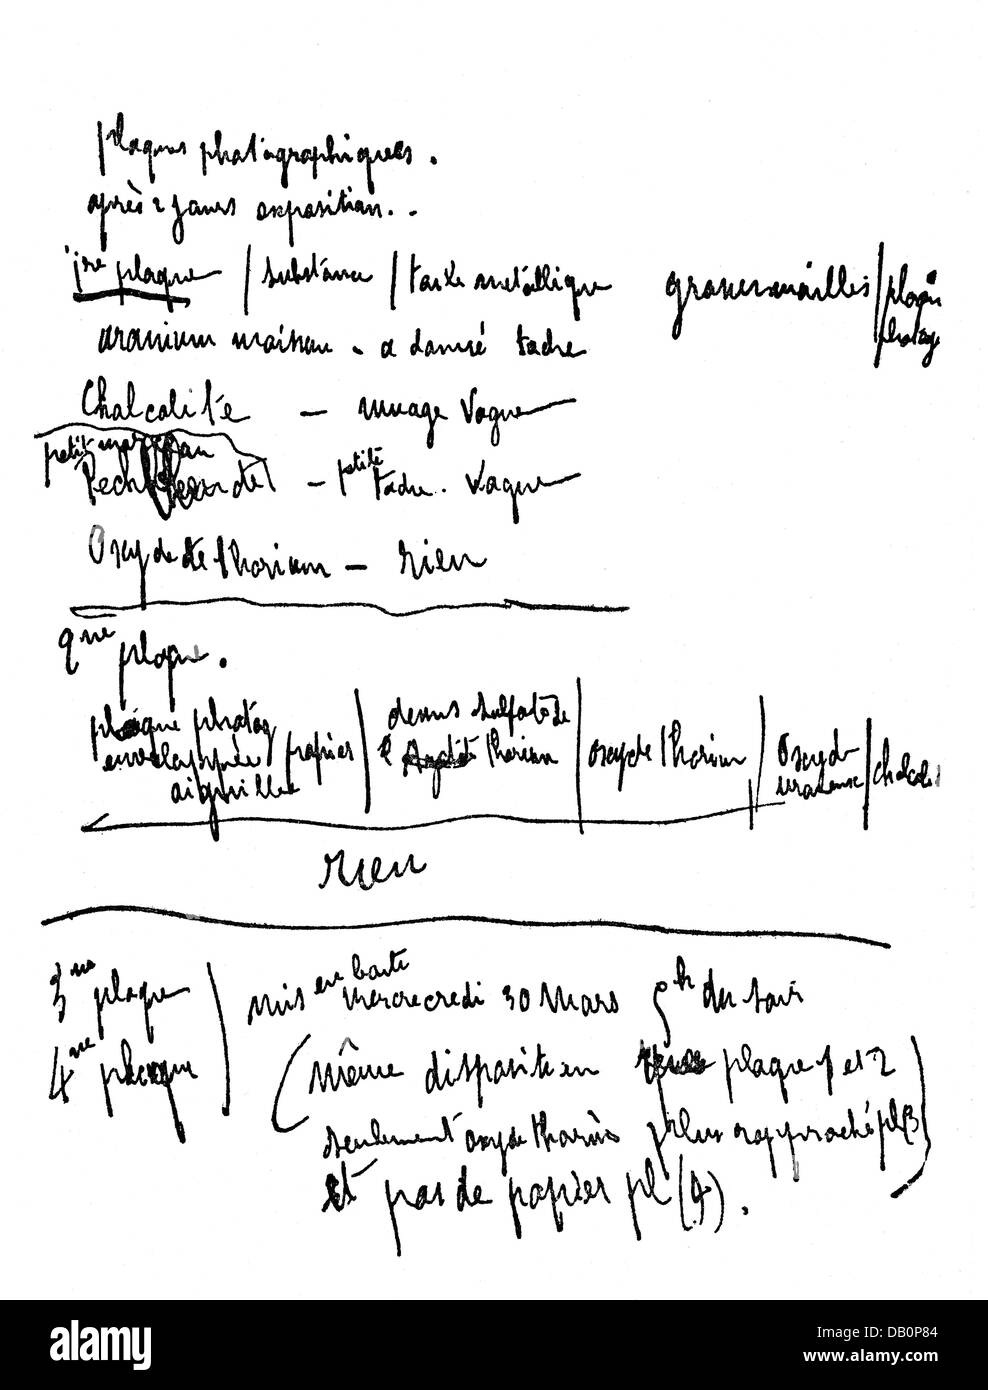 plaques photographiques.
après 2 jours exposition..
1re plaque / substance / toile métallique grosses mailles / plaque photog
uranium morceau - a donné tache
Chalcolite - nuage vague
petit morceau
- petite tache. vague
Oxyde de thorium - rien
2me plaque.
plaque photog enveloppée aiguille / papier / dessus sulfate de thorium / oxyde thorium / oxyde uraneux / chalcoli
rien
3me plaque / mis en boite mercrecredi 30 Mars 5h du soir
4me plaque (même disposition plaque 1 et 2
seulement oxyde thorium plus rapproché pl 3)
et pas de papier pl (4).
alamy
Image ID: DB0P84
www.alamy.com